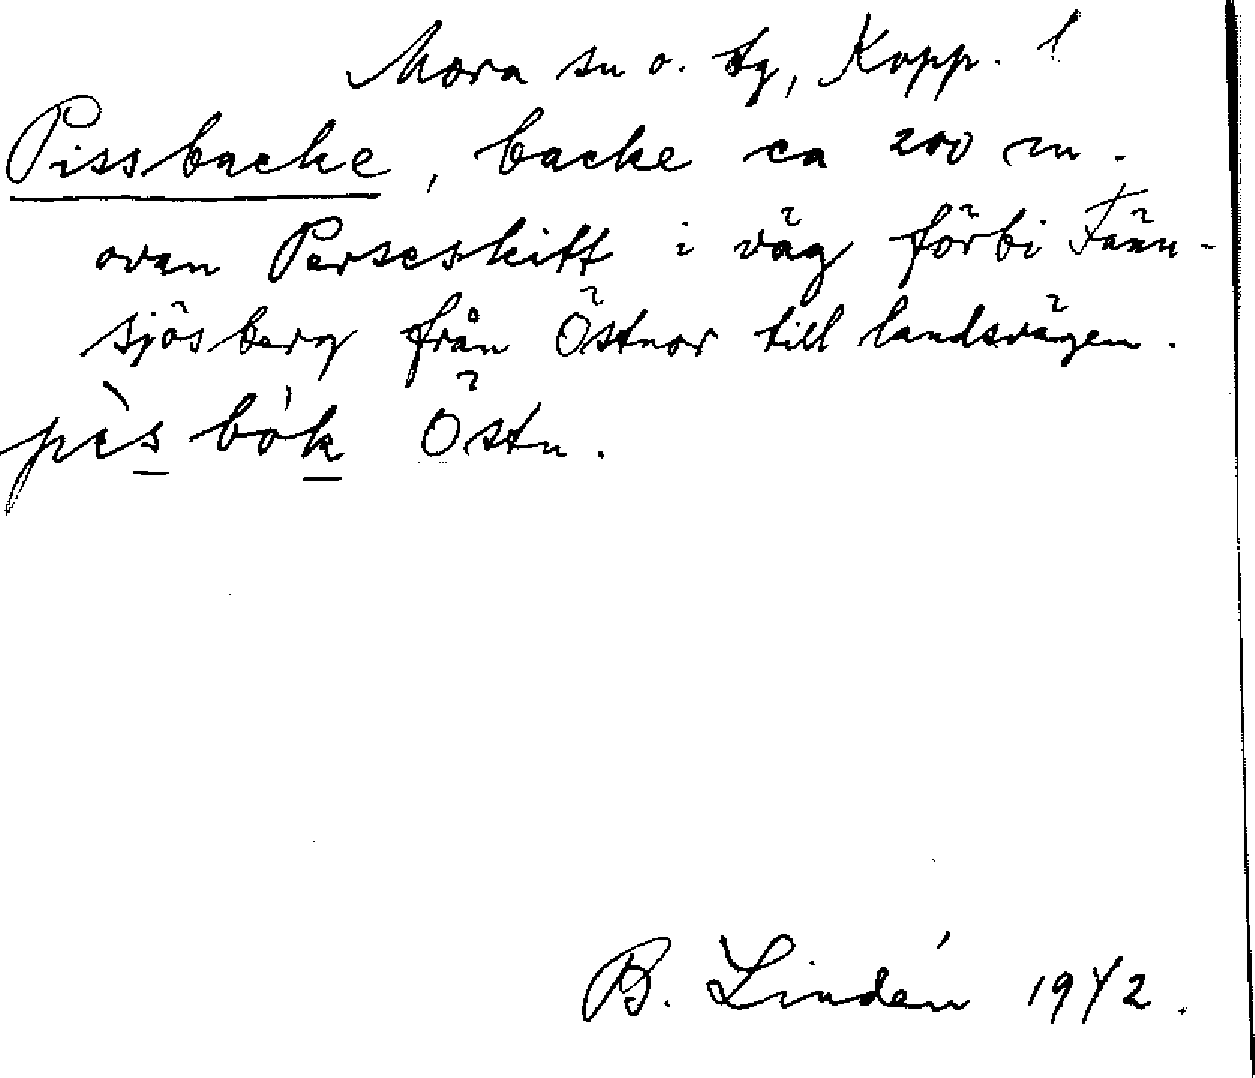 Mora sn o. tg, Kopp. l
Pissbacke, backe ca 200 m.
ovan Perseskift i väg förbi Fänn-
sjösberg från Östnor till landsvägen.
pès bók Östn.
B. Lindén 1942.